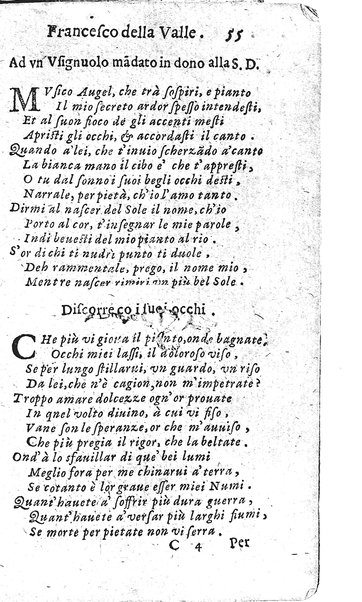 Francesco della Valle. 55
Ad vn' Vsignuolo mādato in dono alla S. D.
MVsico Augel, che trà sospiri, e pianto
Il mio secreto ardor spesso intendesti,
Et al suon fioco de gli accenti mesti
Apristi gli occhi, & accordasti il canto.
Quando a'lei, che t'inuio scherzādo à'canto
La bianca mano il cibo e' che t'appresti,
O tu dal sonno i suoi begli occhi desti,
Narrale, per pietà, ch'io l'amo tanto.
Dirmi al nascer del Sole il nome, ch'io
Porto al cor, t'insegnar le mie parole,
Indi beuesti del mio pianto al rio.
S'or di chi ti nudrì punto ti duole,
Deh rammentale, prego, il nome mio,
Mentre nascer rimiri un più bel Sole.
Discorre co i suoi occhi.
CHe più vi gioua il pianto, onde bagnate,
Occhi miei lassi, il doloroso viso,
Se per lungo stillarui, vn guardo, vn riso
Da lei, che n'è cagion, non m'impetrate?
Troppo amare dolcezze ogn'or prouate
In quel volto diuino, à cui vi fiso,
Vane son le speranze, or che m'auuiso,
Che più pregia il rigor, che la beltate.
Ond'à lo sfauillar di que' bei lumi
Meglio fora per me chinarui à terra,
Se cotanto è lor graue esser miei Numi.
Quant'hauete à' soffrir più dura guerra,
Quant'hauete à'versar più larghi fiumi,
Se morte per pietate non vi serra.
C 4 Per